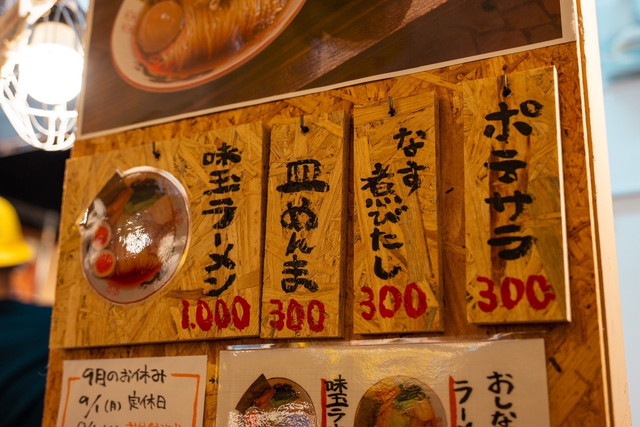 味玉ラーメン
1.000
皿めんま
300
なす
煮びたし
300
ポテサラ
300
9月のお休み
9/1(月)定休日
味玉ラ
おしな
ラーメ